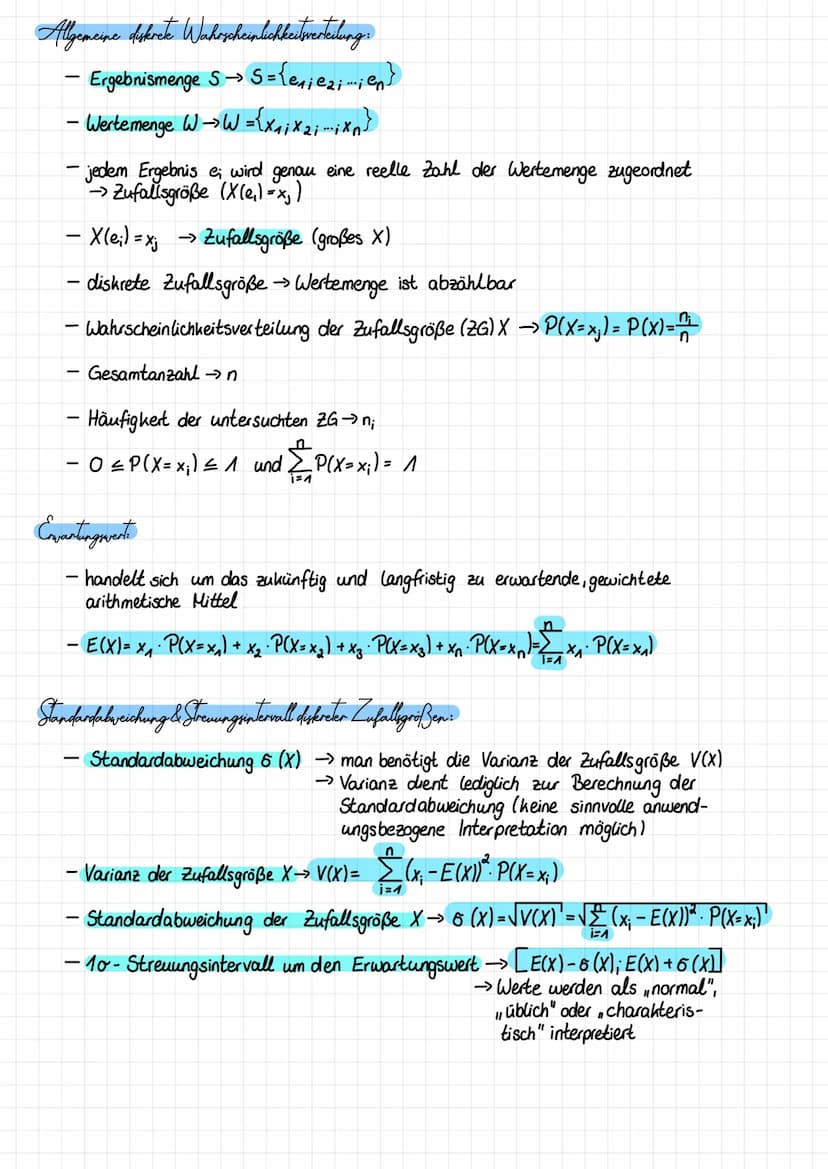 Allgemeine diskrete Wahrscheinlichkeitsverteilung:
- Ergebnismenge S → S = {e₁; e₂; ...; eₙ}
- Wertemenge W → W = {x₁; x₂; ...; xₙ}
- jedem Ergebnis eᵢ wird genau eine reelle Zahl der Wertemenge zugeordnet
→ Zufallsgröße (X(eᵢ) = xⱼ)
- X(eᵢ) = xⱼ → Zufallsgröße (großes X)
- diskrete Zufallsgröße → Wertemenge ist abzählbar
- Wahrscheinlichkeitsverteilung der Zufallsgröße (ZG) X → P(X=xⱼ) = P(X) = nᵢ/n
- Gesamtanzahl → n
- Häufigkeit der untersuchten ZG → nᵢ
- 0 ≤ P(X=xᵢ) ≤ 1 und ∑ⁿᵢ₌₁ P(X=xᵢ) = 1
Erwartungswert:
- handelt sich um das zukünftig und langfristig zu erwartende, gewichtete
arithmetische Mittel
- E(X) = x₁ · P(X=x₁) + x₂ · P(X=x₂) + x₃ · P(X=x₃) + xₙ · P(X=xₙ) = ∑ⁿᵢ₌₁ x₁ · P(X=x₁)
Standardabweichung & Streuungsintervall diskreter Zufallsgrößen:
- Standardabweichung σ (X) → man benötigt die Varianz der Zufallsgröße V(X)
→ Varianz dient lediglich zur Berechnung der
Standardabweichung (keine sinnvolle anwend-
ungsbezogene Interpretation möglich)
- Varianz der Zufallsgröße X → V(X) = ∑ⁿᵢ₌₁ (xᵢ - E(X))² · P(X=xᵢ)
- Standardabweichung der Zufallsgröße X → σ (X) = √V(X) = √∑ⁿᵢ₌₁ (xᵢ - E(X))² · P(X=xᵢ)
- 1σ - Streuungsintervall um den Erwartungswert → [E(X) - σ(X); E(X) + σ(X)]
→ Werte werden als „normal",
„üblich" oder „charakteris-
tisch" interpretiert